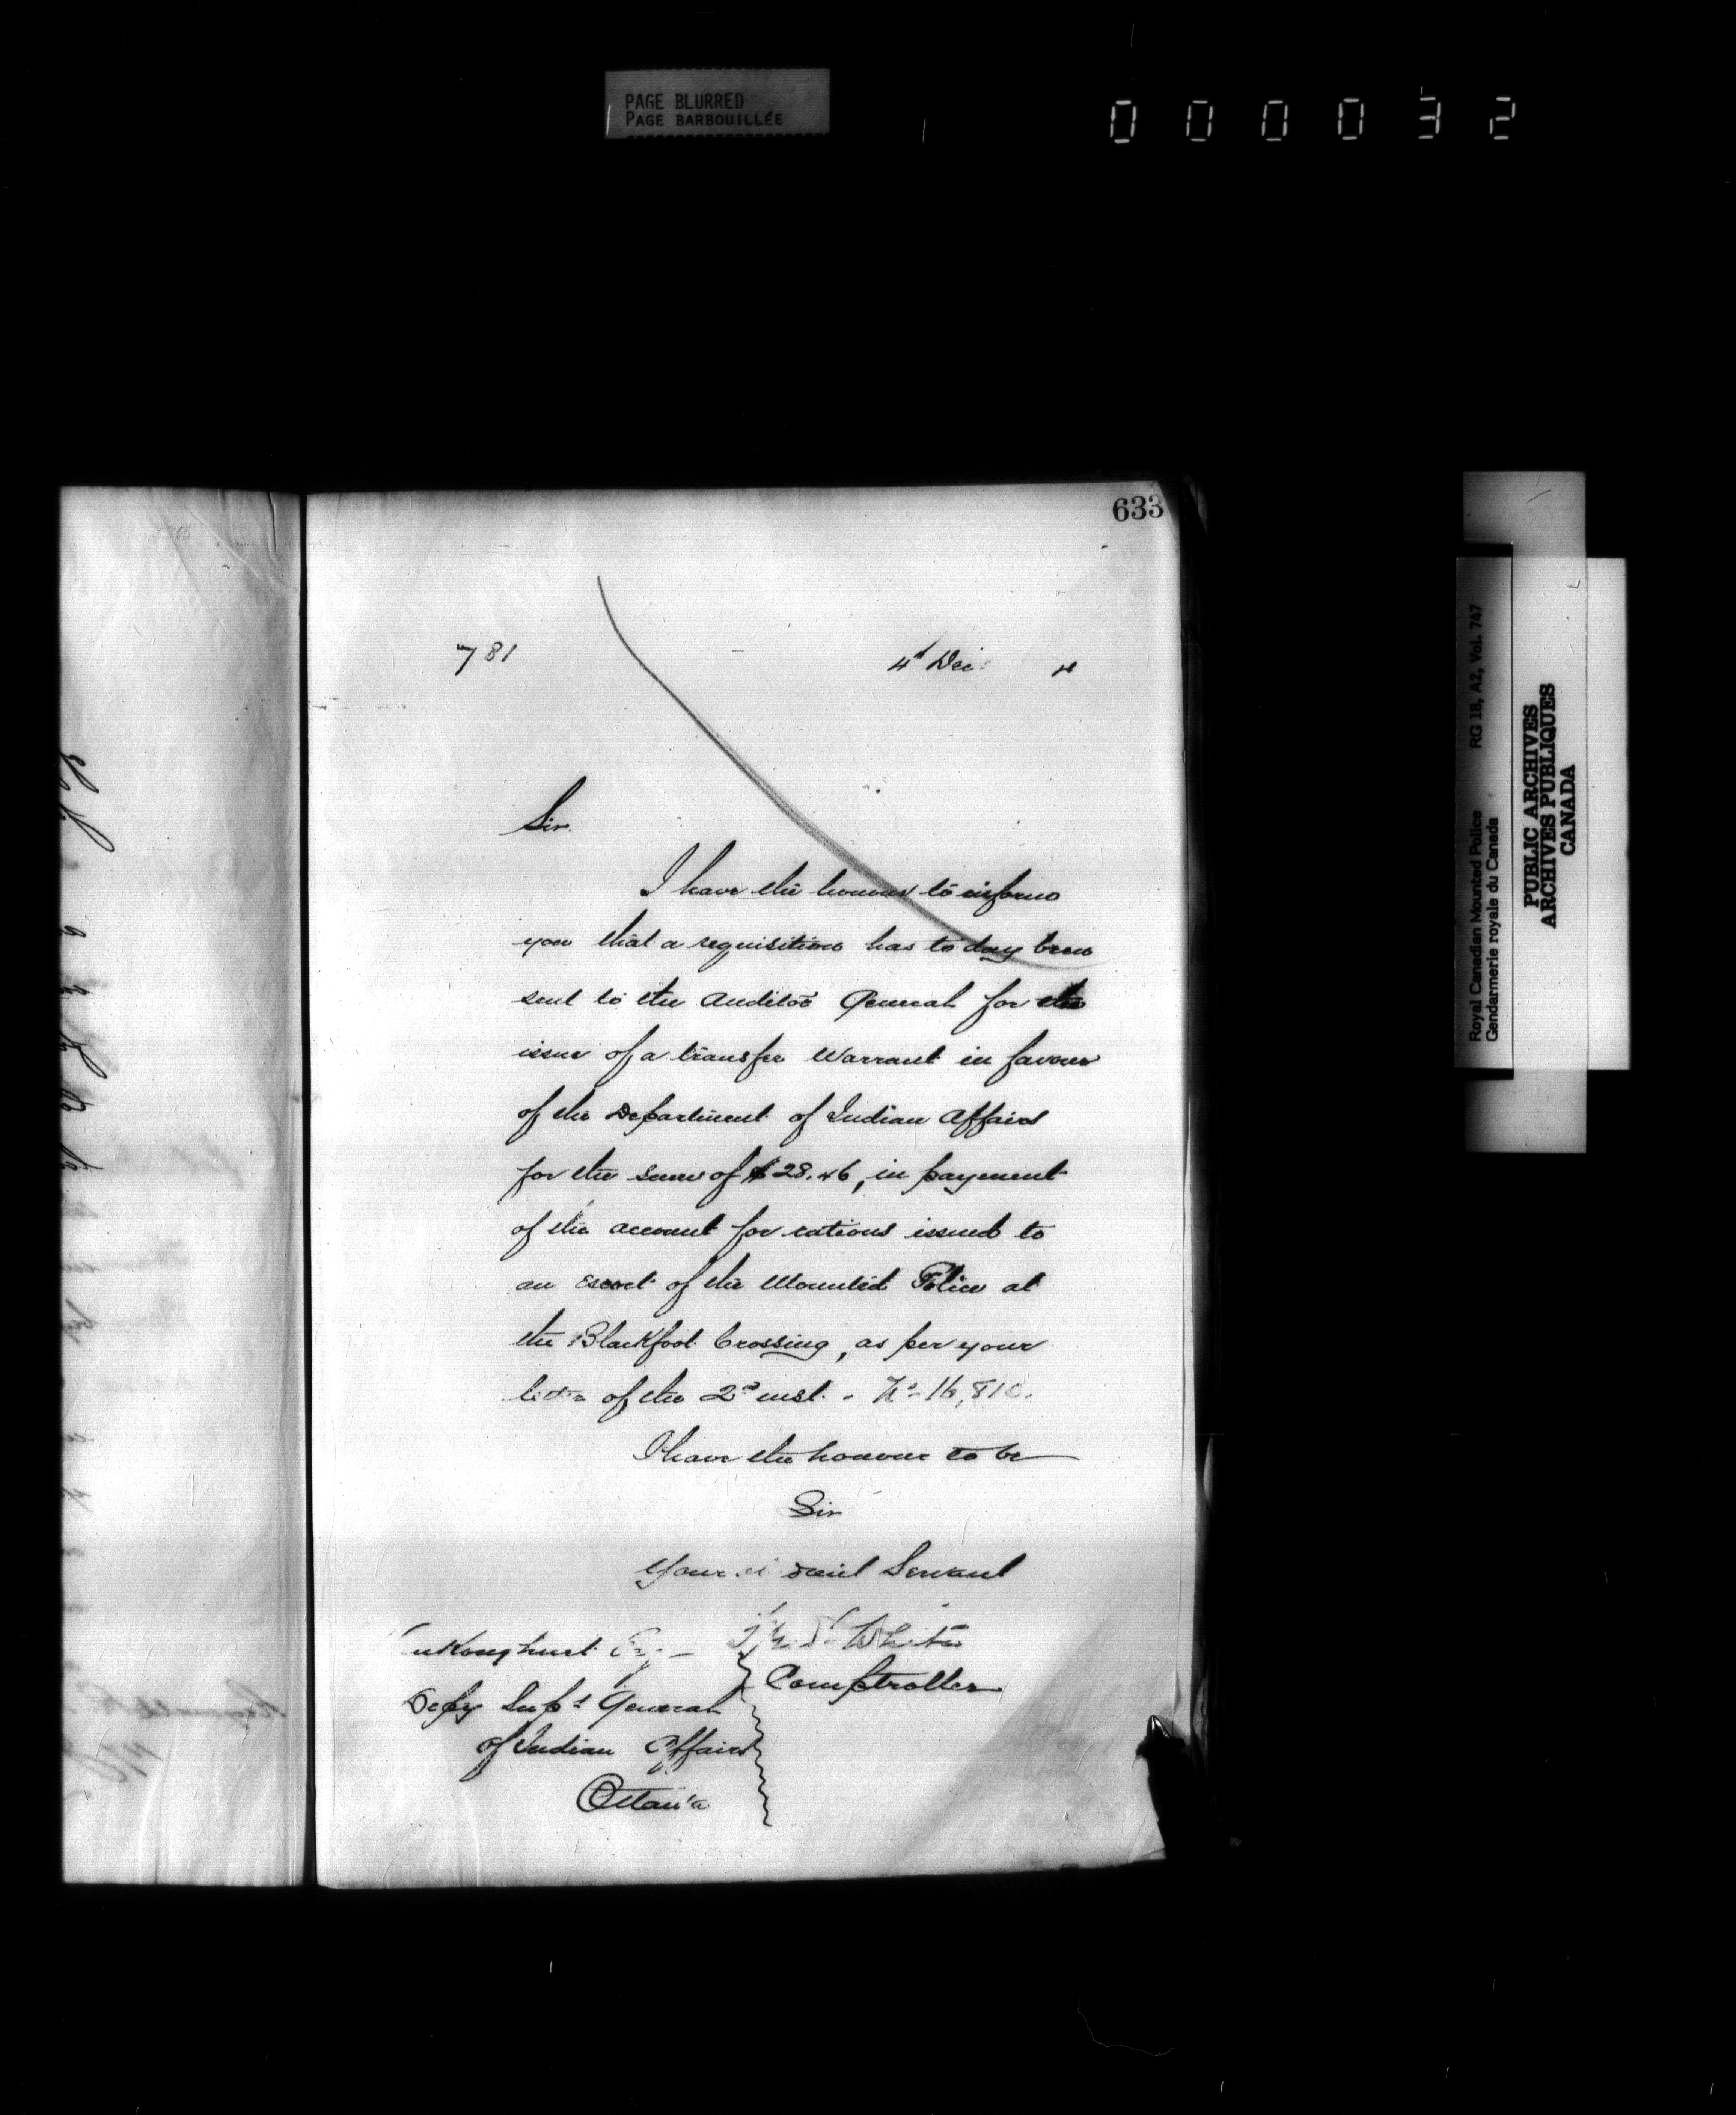 PAGE BLURRED
PAGE BARBOUILLÉE
000032
633
781
4th Dec: 4
Sir.
I have the honour to inform
you that a requisition has to day been
sent to the Auditor General for the
issue of a transfer Warrant in favour
of the Department of Indian Affairs
for the sum of $28.46, in payment
of the account for rations issued to
an escort of the Mounted Police at
the Blackfoot Crossing, as per your
letter of the 2nd inst. - No 16,810.
I have the honour to be
Sir
Your Servant
White
Comptroller
Vankoughnet Esq -
Depy Supt General
of Indian Affairs
Ottawa
Royal Canadian Mounted Police RG 18, A2, Vol. 747
Gendarmerie royale du Canada
PUBLIC ARCHIVES
ARCHIVES PUBLIQUES
CANADA